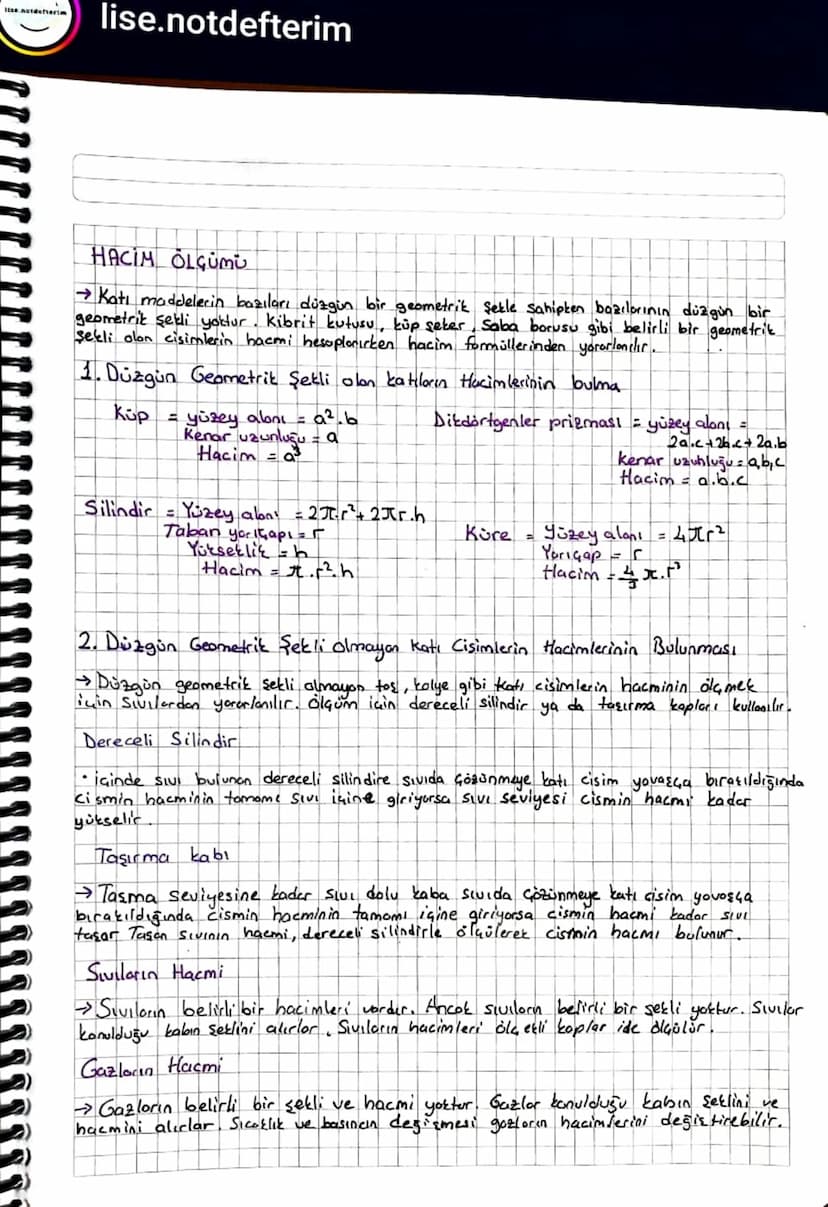 lise.notdefterim
lise.notdefterim
HACİM ÖLÇÜMÜ
→ Katı maddelerin bazıları düzgün bir geometrik şekle sahipken bazılarının düzgün bir
geometrik şekli yoktur. Kibrit kutusu, küp şeker, Soba borusu gibi belirli bir geometrik
şekli olan cisimlerin hacmi hesaplanırken hacim formüllerinden yararlanılır.
1. Düzgün Geometrik Şekli olan katıların Hacimlerinin bulma
Küp = yüzey alanı = a².b
Kenar uzunluğu = a
Hacim = a³
Dikdörtgenler prizması = yüzey alanı =
2a.c+2b.c+2a.b
Kenar uzuhluğu = a,b,c
Hacim = a.b.c
Silindir = Yüzey alanı = 2π.r²+2πr.h
Taban yarıçapı = r
Yükseklik = h
Hacim = π.r².h
Küre = Yüzey alanı = 4πr²
Yarıçap = r
Hacim = 4/3 π.r³
2. Düzgün Geometrik Şekli Olmayan Katı Cisimlerin Hacimlerinin Bulunması
→ Düzgün geometrik şekli olmayan taş, kolye gibi katı cisimlerin hacminin ölçmek
için sıvılardan yararlanılır. Ölçüm için dereceli silindir ya da taşırma kapları kullanılır.
Dereceli Silindir
• içinde sıvı bulunan dereceli silindire sıvıda çözünmeye katı cisim yavaşça bıratıldığında
cismin hacminin tamamı sıvı içine giriyorsa sıvı seviyesi cismin hacmi kadar
yükselir.
Taşırma kabı
→ Taşma seviyesine kadar sıvı dolu kaba sıvıda çözünmeye katı cisim yavaşça
bırakıldığında cismin hacminin tamamı içine giriyorsa cismin hacmi kadar sıvı
taşar Taşan sıvının hacmi, dereceli silindirle ölçülerek cismin hacmi bulunur.
Sıvıların Hacmi
→ Sıvıların belirli bir hacimleri vardır. Ancak sıvıların belirli bir şekli yoktur. Sıvılar
konulduğu kabın şeklini alırlar. Sıvıların hacimleri ölçekli kaplar ide ölçülür.
Gazların Hacmi
→ Gazların belirli bir şekli ve hacmi yoktur. Gazlar konulduğu kabın şeklini ve
hacmini alırlar. Sıcaklık ve basıncın değişmesi gazların hacimlerini değiştirebilir.